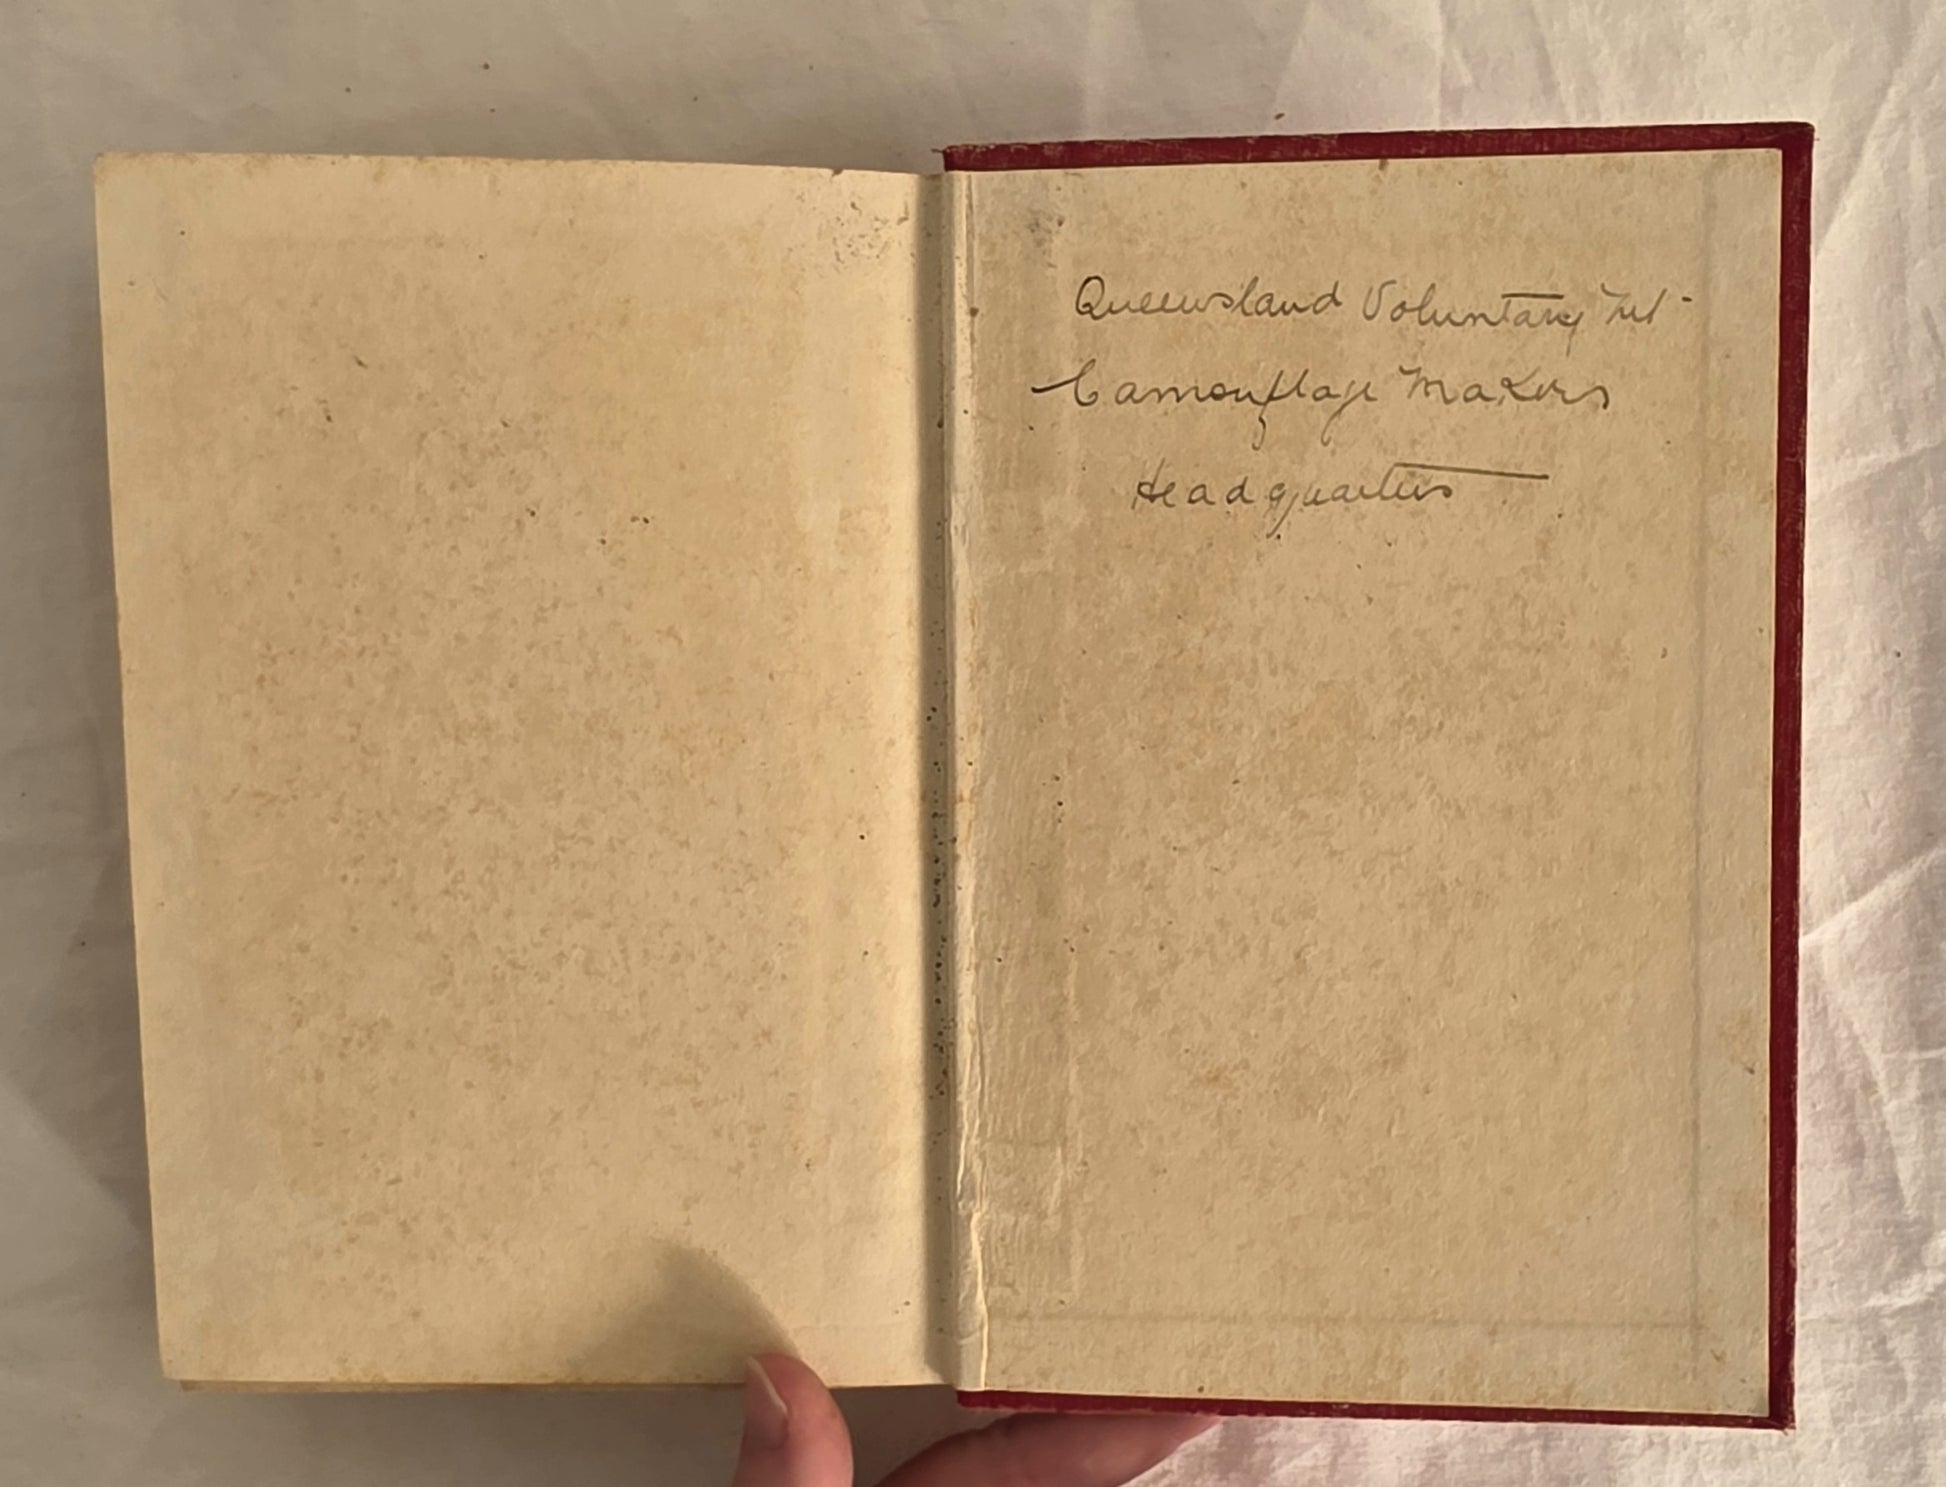 Queensland Voluntary Net -
Camouflage Makers
Headquarters